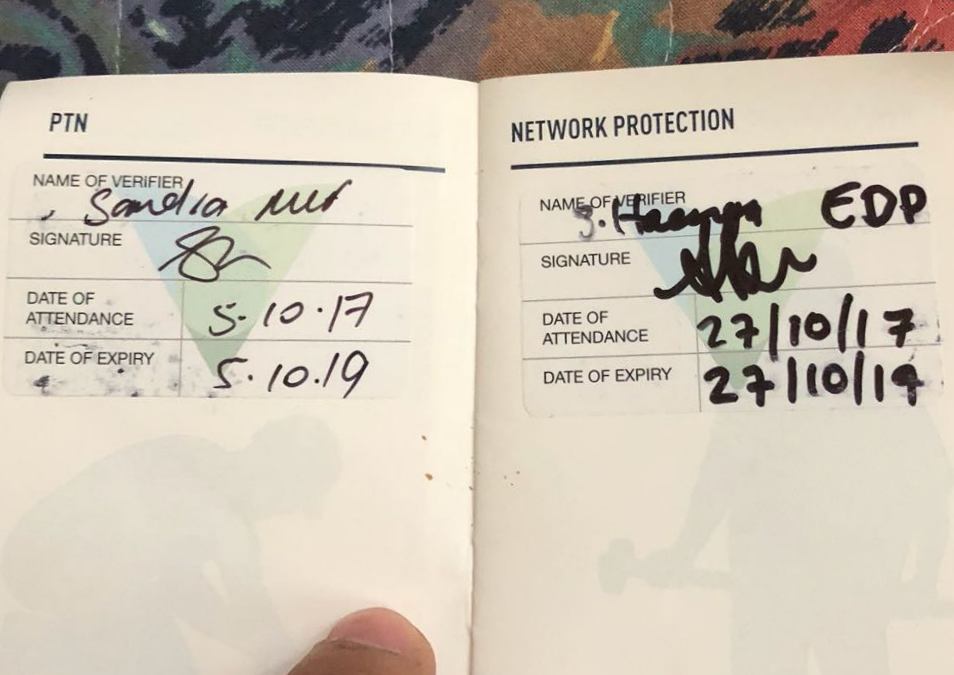 PTN
NAME OF VERIFIER
Sandra
SIGNATURE
DATE OF
ATTENDANCE
5.10.17
DATE OF EXPIRY
5.10.19
NETWORK PROTECTION
NAME OF VERIFIER
EDP
SIGNATURE
DATE OF
ATTENDANCE
27/10/17
DATE OF EXPIRY
27/10/19